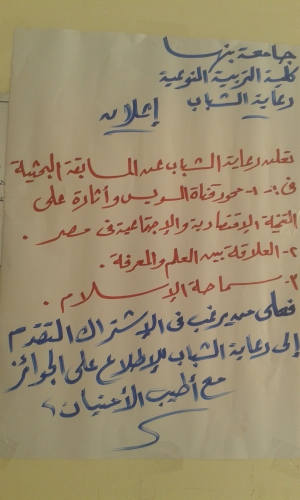 جامعة بنها
كلية التربية النوعية
رعاية الشباب
إعلان
تعلن رعاية الشباب عن المسابقة البحثية
فى :- ١- محور قناة السويس وأثارة على
التنمية الإقتصادية والإجتماعية فى مصر .
٢- العلاقة بين العلم والمعرفة .
٣- سماحة الإسلام .
فعلى من يرغب فى الإشتراك التقدم
إلى رعاية الشباب للإطلاع على الجوائز
مع أطيب الأمنيات ،